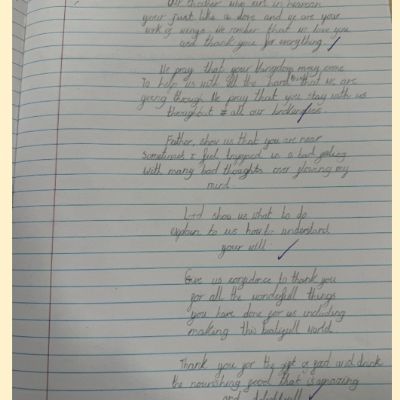 Our father who art in heaven
your just like a dove and we are your
of wings. We remember that we love you
and thank you for everything.
We pray that your Kingdom may come
To help us with all the hard that we are
going through We pray that you stay with us
throughout all our
Father, show us that you are near
Sometimes I feel trapped in a bad feeling
With many bad thoughts over flowing my
mind.
Lord show us what to do
explain to us how to understand
your will
Give us confidence to thank you
for all the wonderfull things
you have done for us including
making this world
Thank you for the gift of food and drink
the nourishing food that is amazing
and